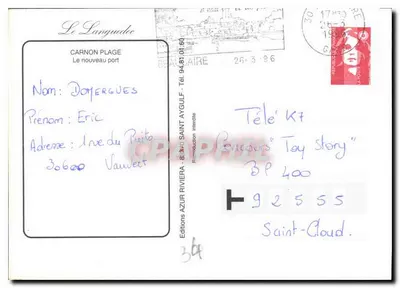 Le Languedoc
CARNON PLAGE
Le nouveau port
Nom: DOMERGUES
Prénom: Eric
Adresse: 1 rue du Puits
30600 Vauvert
Editions AZUR RIVIERA - SAINT AYGULF - Tél. 94.81.01.50
interdite
26-3-96
30
Télé K7
Concours "Toy Story"
BP 400
T 92555
Saint-Cloud.